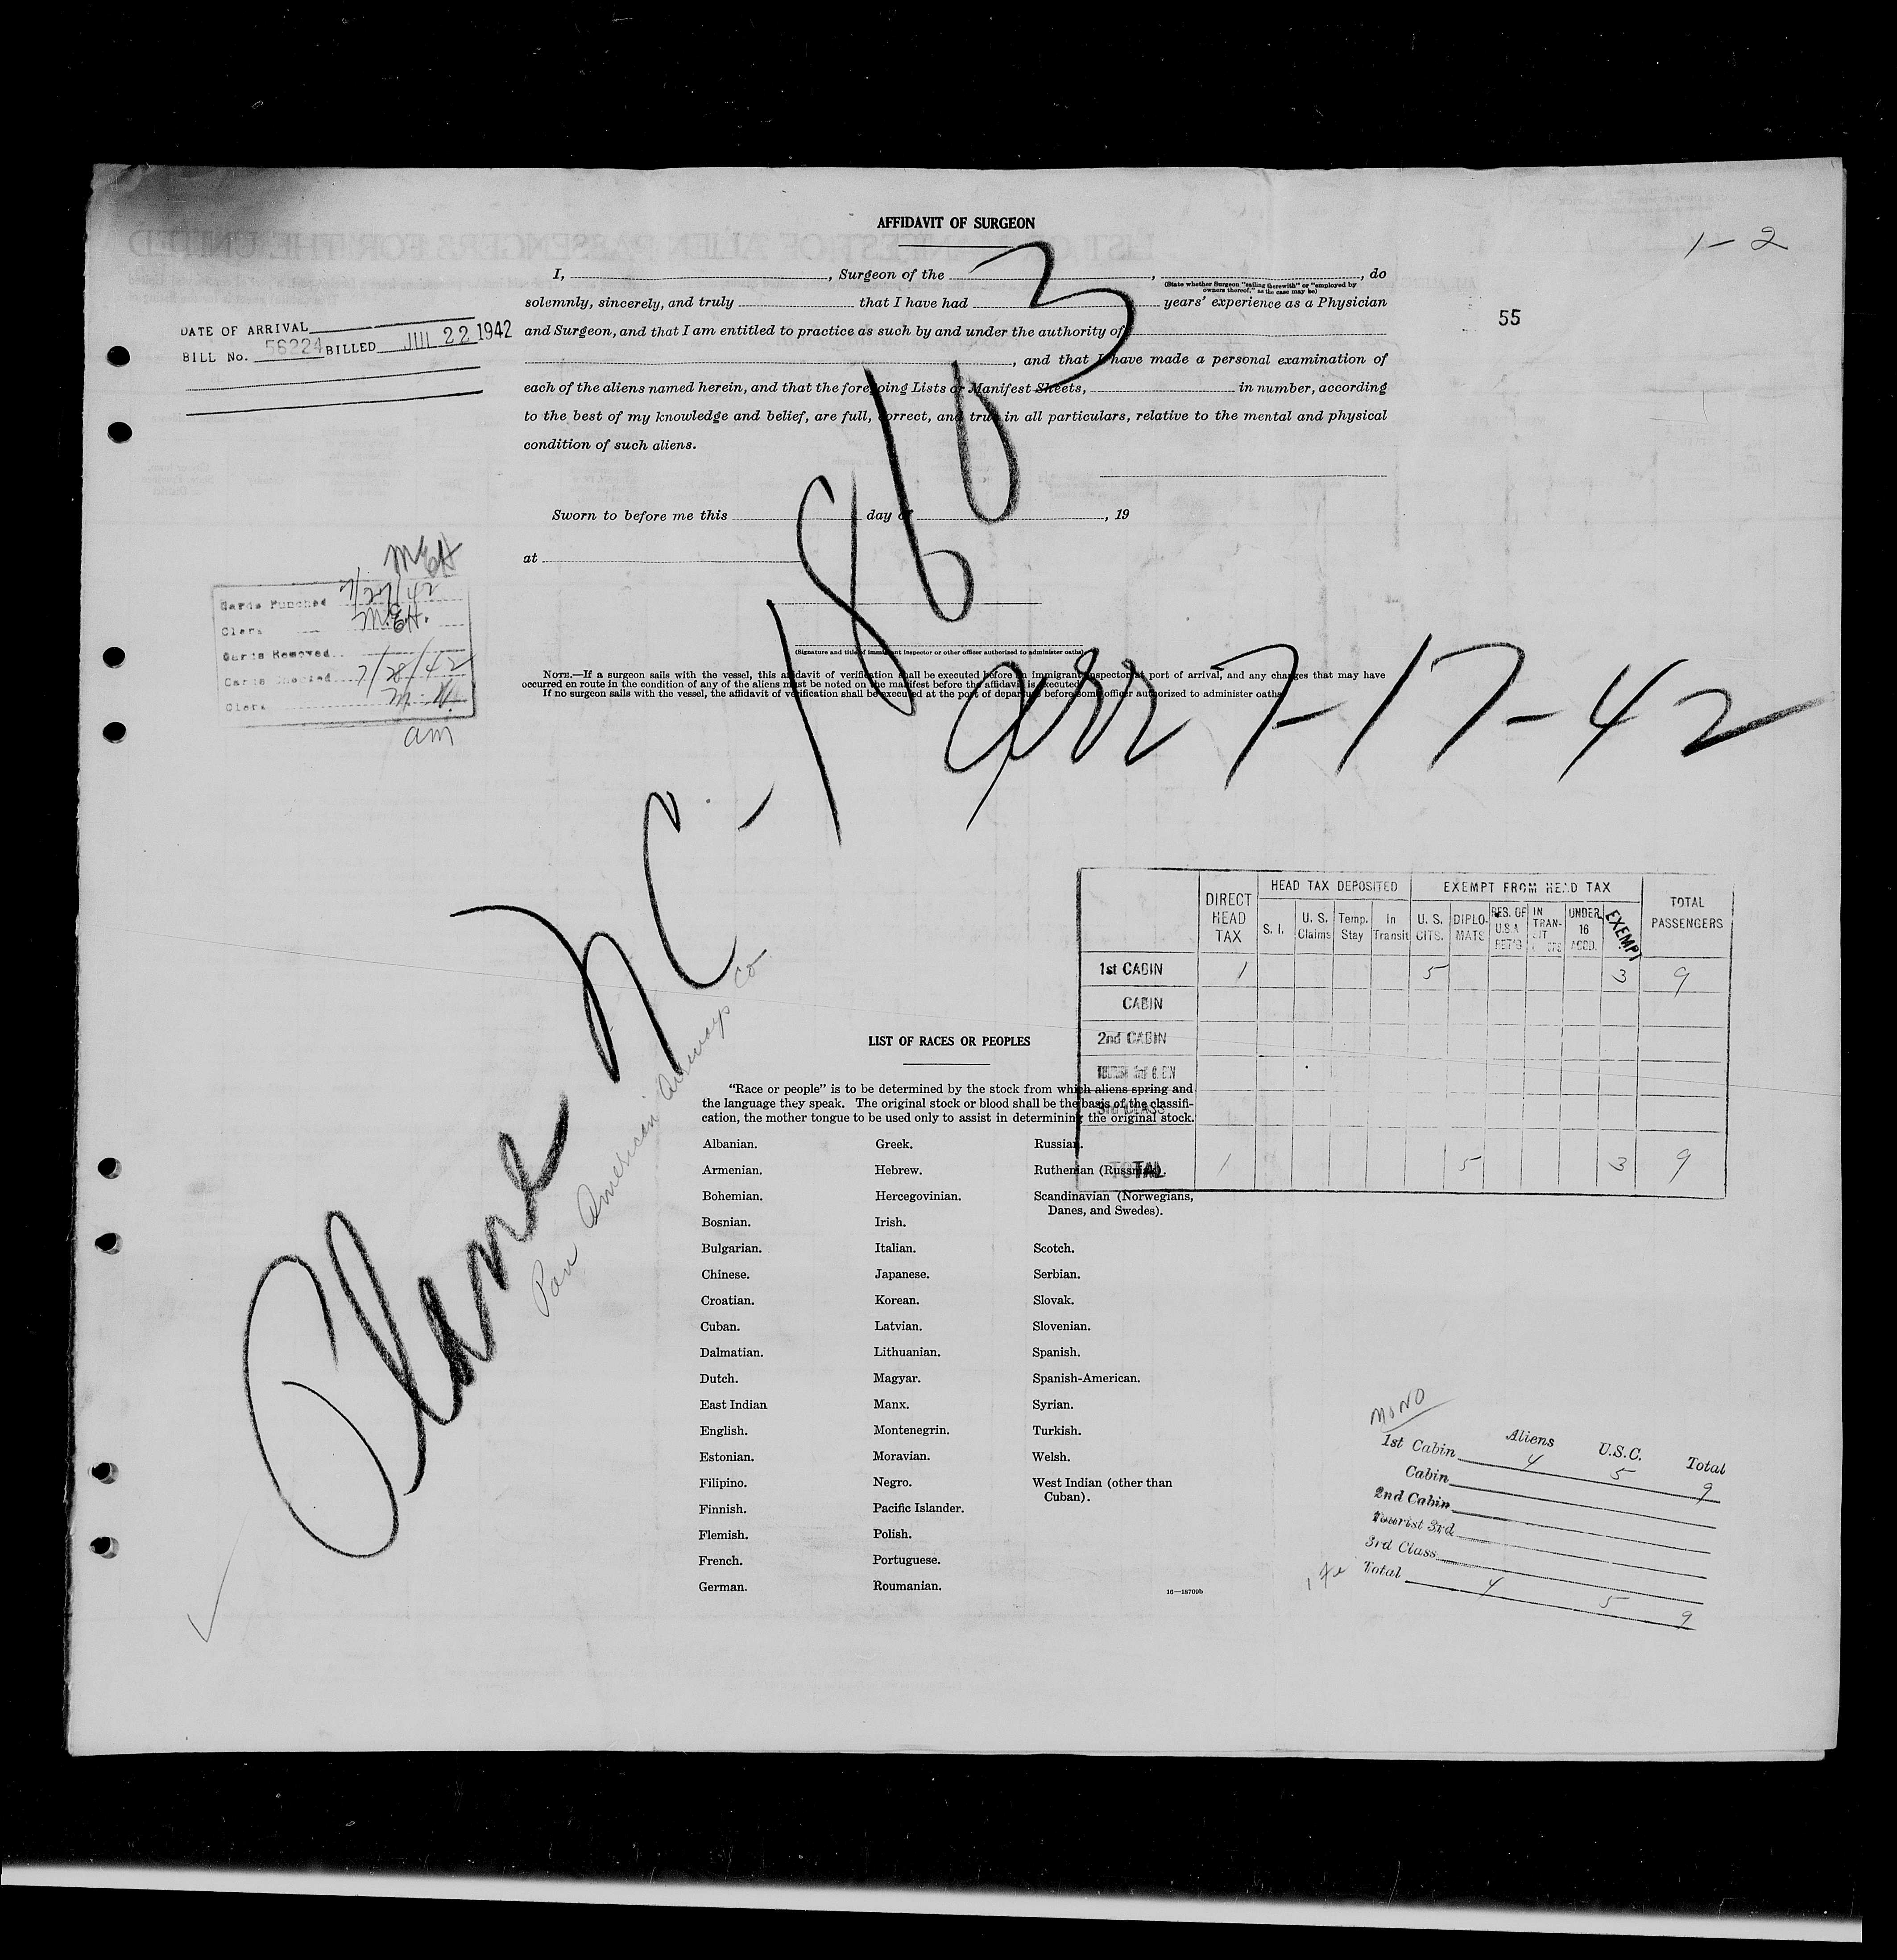 AFFIDAVIT OF SURGEON
1-2
I, , Surgeon of the , , do
(State whether Surgeon "sailing therewith" or "employed by
owners thereof," as the case may be)
solemnly, sincerely, and truly that I have had years' experience as a Physician
and Surgeon, and that I am entitled to practice as such by and under the authority of
, and that I have made a personal examination of
each of the aliens named herein, and that the foregoing Lists or Manifest Sheets, in number, according
to the best of my knowledge and belief, are full, correct, and true in all particulars, relative to the mental and physical
condition of such aliens.
55
DATE OF ARRIVAL
BILL No. 56224 BILLED JUL 22 1942
Sworn to before me this day of , 19
at
(Signature and title of immigrant inspector or other officer authorized to administer oaths)
NOTE.—If a surgeon sails with the vessel, this affidavit of verification shall be executed before an immigrant inspector at port of arrival, and any changes that may have
occurred en route in the condition of any of the aliens must be noted on the manifest before the affidavit is executed.
If no surgeon sails with the vessel, the affidavit of verification shall be executed at the port of departure before some officer authorized to administer oaths.
MEH
Cards Punched
Clerk M.E.H.
Cards Removed
Cards Checked 7/28/42
Clerk
am
Plane NC-18603
arr 7-17-42
Pan American Airways Co
DIRECT HEAD TAX
HEAD TAX DEPOSITED
EXEMPT FROM HEAD TAX
TOTAL PASSENGERS
S. I. U. S. Claims Temp. Stay In Transit U. S. CITS. DIPLOMATS RES. OF U.S.A RET'G IN TRANSIT UNDER 16 ACCD. EXEMPT
1st CABIN 1 5 3 9
CABIN
2nd CABIN
3rd CLASS
TOTAL 1 5 3 9
LIST OF RACES OR PEOPLES
"Race or people" is to be determined by the stock from which aliens spring and
the language they speak. The original stock or blood shall be the basis of the classifi-
cation, the mother tongue to be used only to assist in determining the original stock.
Albanian.
Armenian.
Bohemian.
Bosnian.
Bulgarian.
Chinese.
Croatian.
Cuban.
Dalmatian.
Dutch.
East Indian
English.
Estonian.
Filipino.
Finnish.
Flemish.
French.
German.
Greek.
Hebrew.
Hercegovinian.
Irish.
Italian.
Japanese.
Korean.
Latvian.
Lithuanian.
Magyar.
Manx.
Montenegrin.
Moravian.
Negro.
Pacific Islander.
Polish.
Portuguese.
Roumanian.
Russian.
Ruthenian (Russniak).
Scandinavian (Norwegians,
Danes, and Swedes).
Scotch.
Serbian.
Slovak.
Slovenian.
Spanish.
Spanish-American.
Syrian.
Turkish.
Welsh.
West Indian (other than
Cuban).
16—18709b
MONO
Aliens U.S.C. Total
1st Cabin 4 5 9
Cabin
2nd Cabin
Tourist 3rd
3rd Class
Total 4 5 9